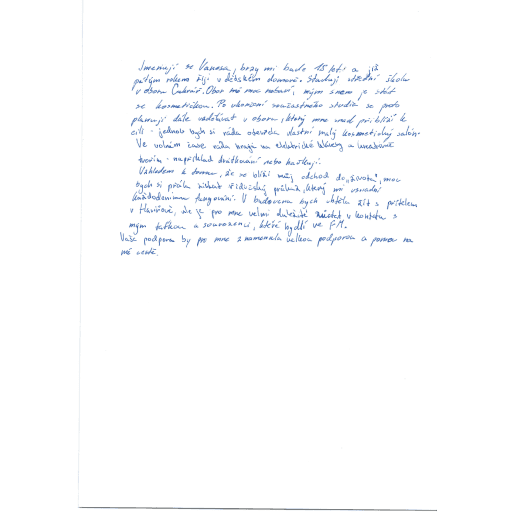 Jmenuji se Vanesa, brzy mi bude 15 let a již
pátým rokem žiji v dětském domově. Studuji střední školu
v oboru Cukrář. Obor mě moc nebaví, mým snem je stát
se kosmetičkou. Po ukončení současného studia se proto
plánuji dále vzdělávat v oboru, který mne snad přiblíží k
cíli - jednou bych si ráda otevřela vlastní malý kosmetický salón.
Ve volném čase ráda hraji na elektrické klávesy a
tvořím - například drátkování nebo háčkuji.
Vzhledem k tomu, že se blíží můj odchod do "života", moc
bych si přála získat řidičský průkaz, který mi usnadní
každodennímu fungování. V budoucnu bych chtěla žít s přítelem
v Havířově, ale je pro mne velmi důležité zůstat v kontaktu s
mým taťkou a sourozenci, kteří bydlí ve FM.
Vaše podpora by pro mne znamenala velkou podporu a pomoc na
mé cestě.